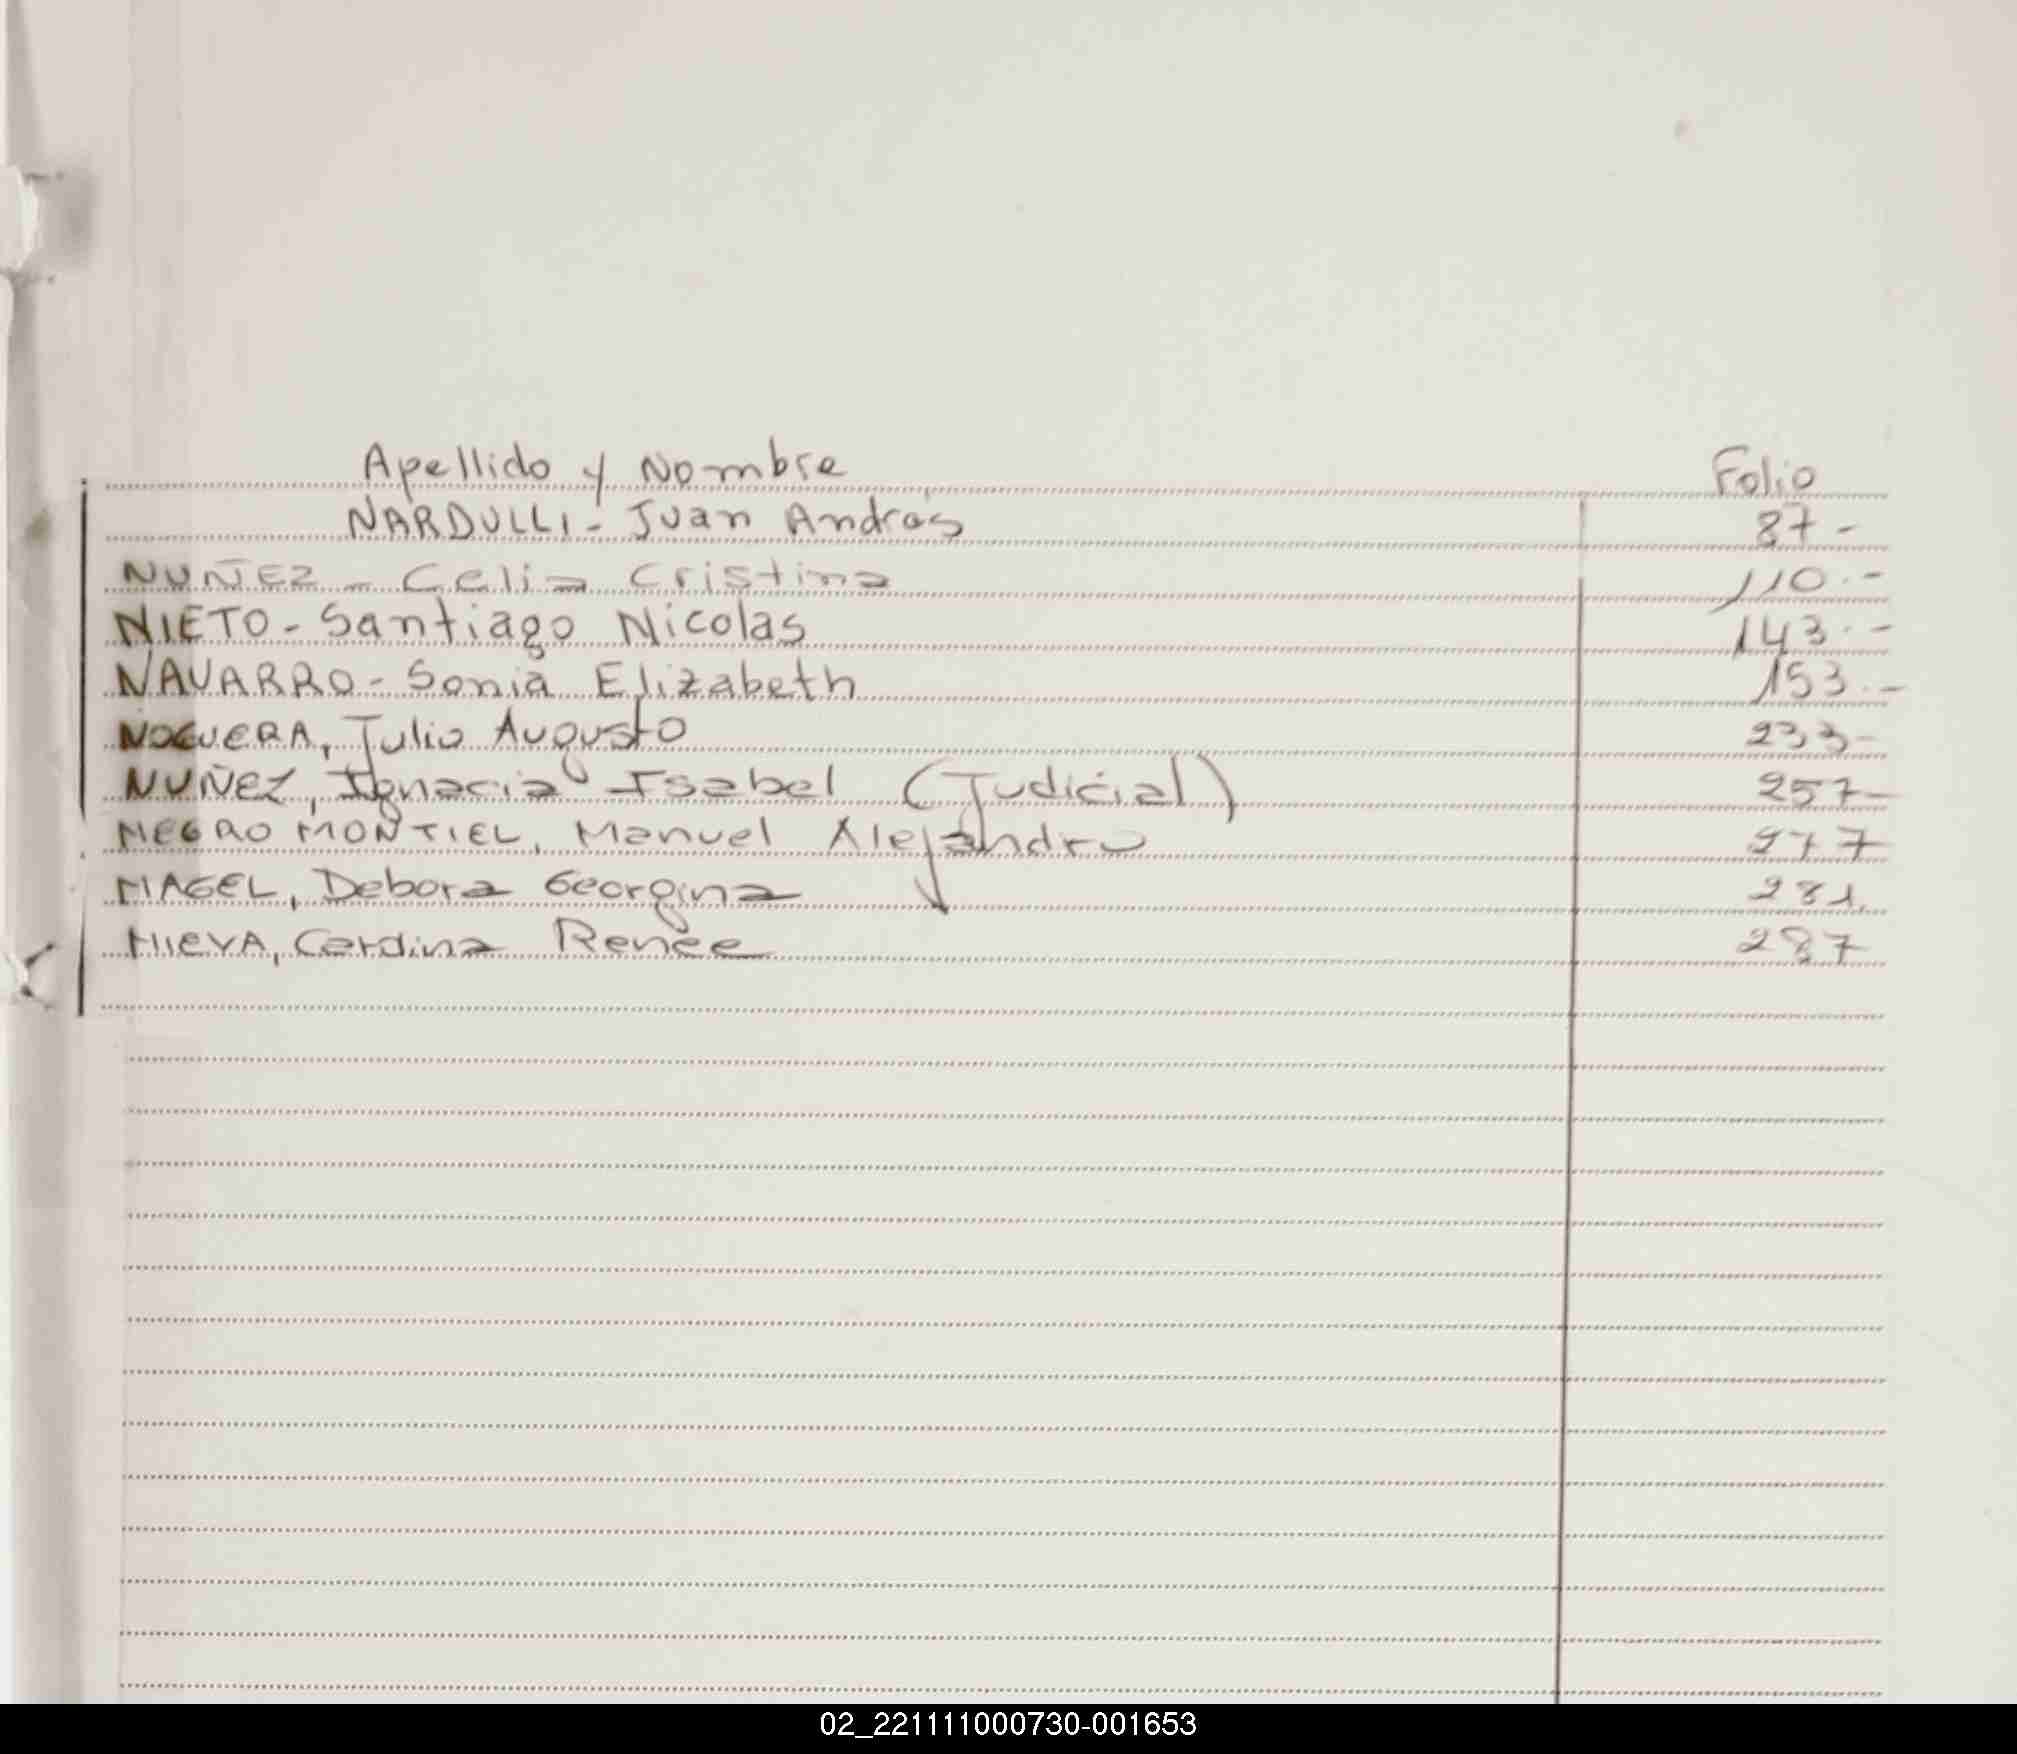 Apellido y Nombre Folio
NARDULLI - Juan Andrés 87 -
NUÑEZ - Celia Cristina 110.-
NIETO - Santiago Nicolas 143.-
NAVARRO - Sonia Elizabeth 153.-
NOGUERA, Julio Augusto 233-
NUÑEZ, Ignacia Isabel (Judicial) 257-
NEGRO MONTIEL, Manuel Alejandro 277
NAGEL, Debora Georgina 281.
NIEVA, Renée 287
02_221111000730-001653